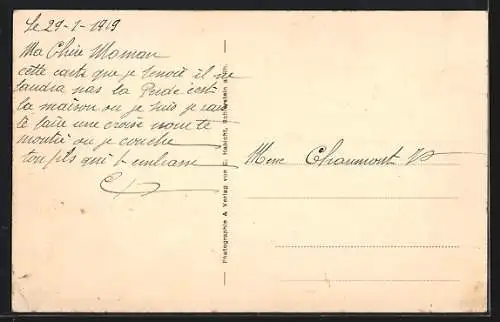 Le 29-1-1919
Ma Chère Maman
cette carte que je t'envoie il ne
faudra pas la Perde c'est
la maison ou je suis je vais
te faire une croise pour te
montré ou je couche
ton fils qui t embrasse
Photographie & Verlag von C. Schierstein a/Rh.
Mme Chaumont